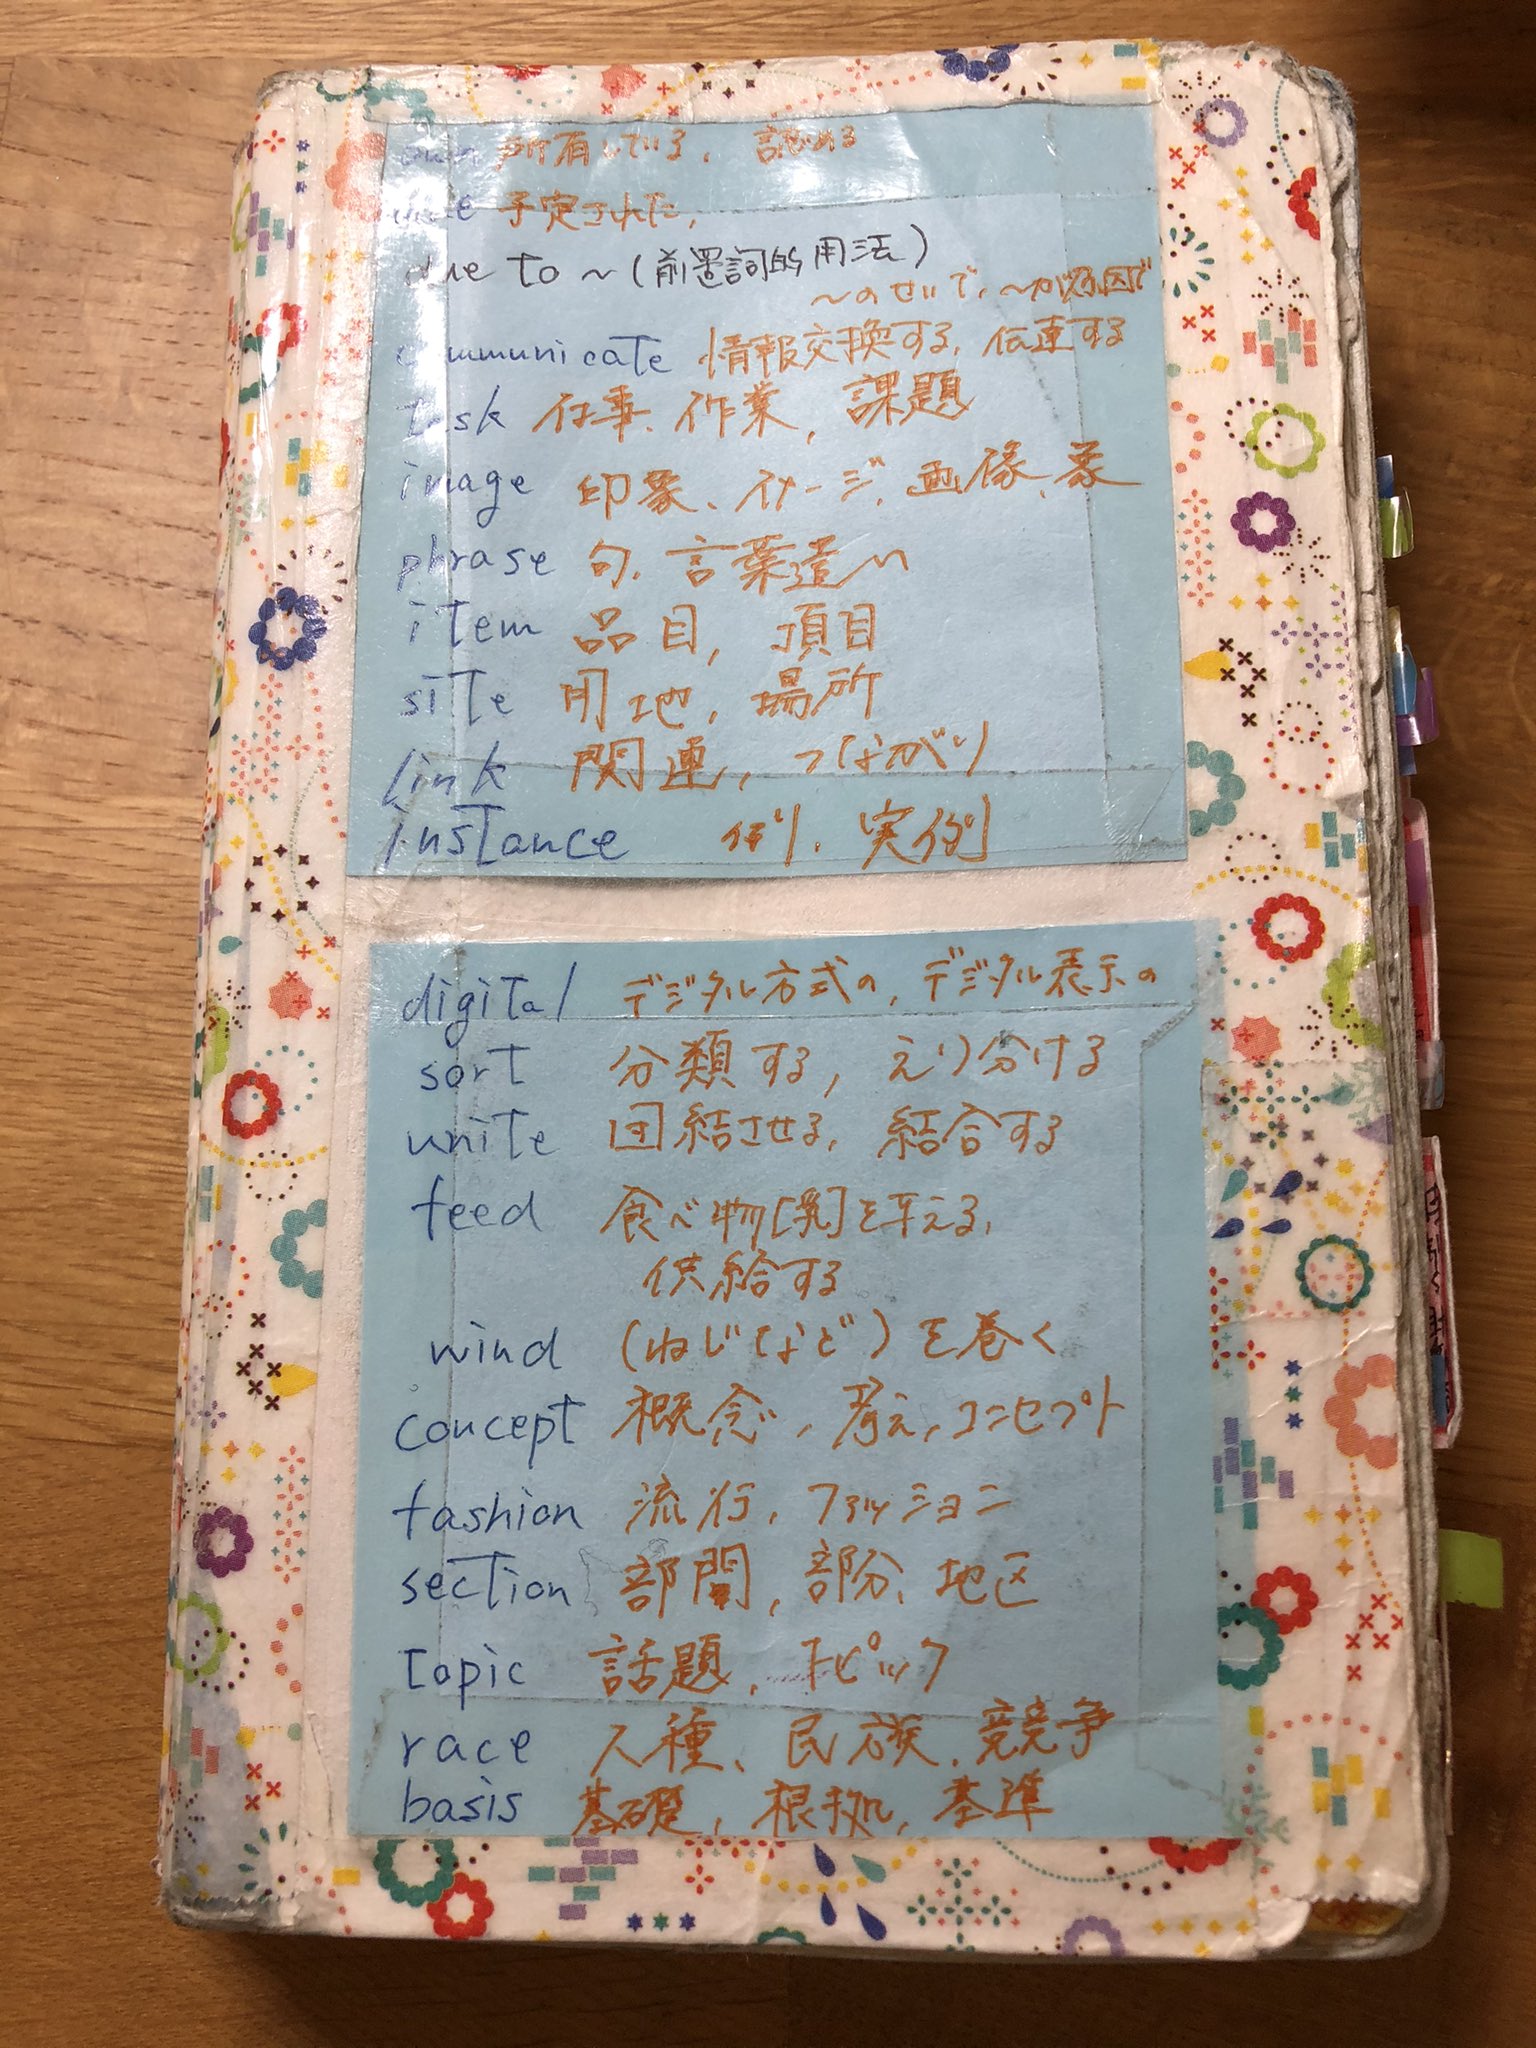 own 所有している, 認める
due 予定された,
due to ~ (前置詞的用法)
~のせいで, ~が原因で
communicate 情報交換する, 伝達する
task 仕事, 作業, 課題
image 印象, イメージ, 画像, 象
phrase 句, 言葉遣い
item 品目, 項目
site 用地, 場所
link 関連, つながり
instance 例, 実例
digital デジタル方式の, デジタル表示の
sort 分類する, えり分ける
unite 団結させる, 結合する
feed 食べ物[乳]を与える,
供給する
wind (ねじなど)を巻く
concept 概念, 考え, コンセプト
fashion 流行, ファッション
section 部門, 部分, 地区
topic 話題, トピック
race 人種, 民族, 競争
basis 基礎, 根拠, 基準